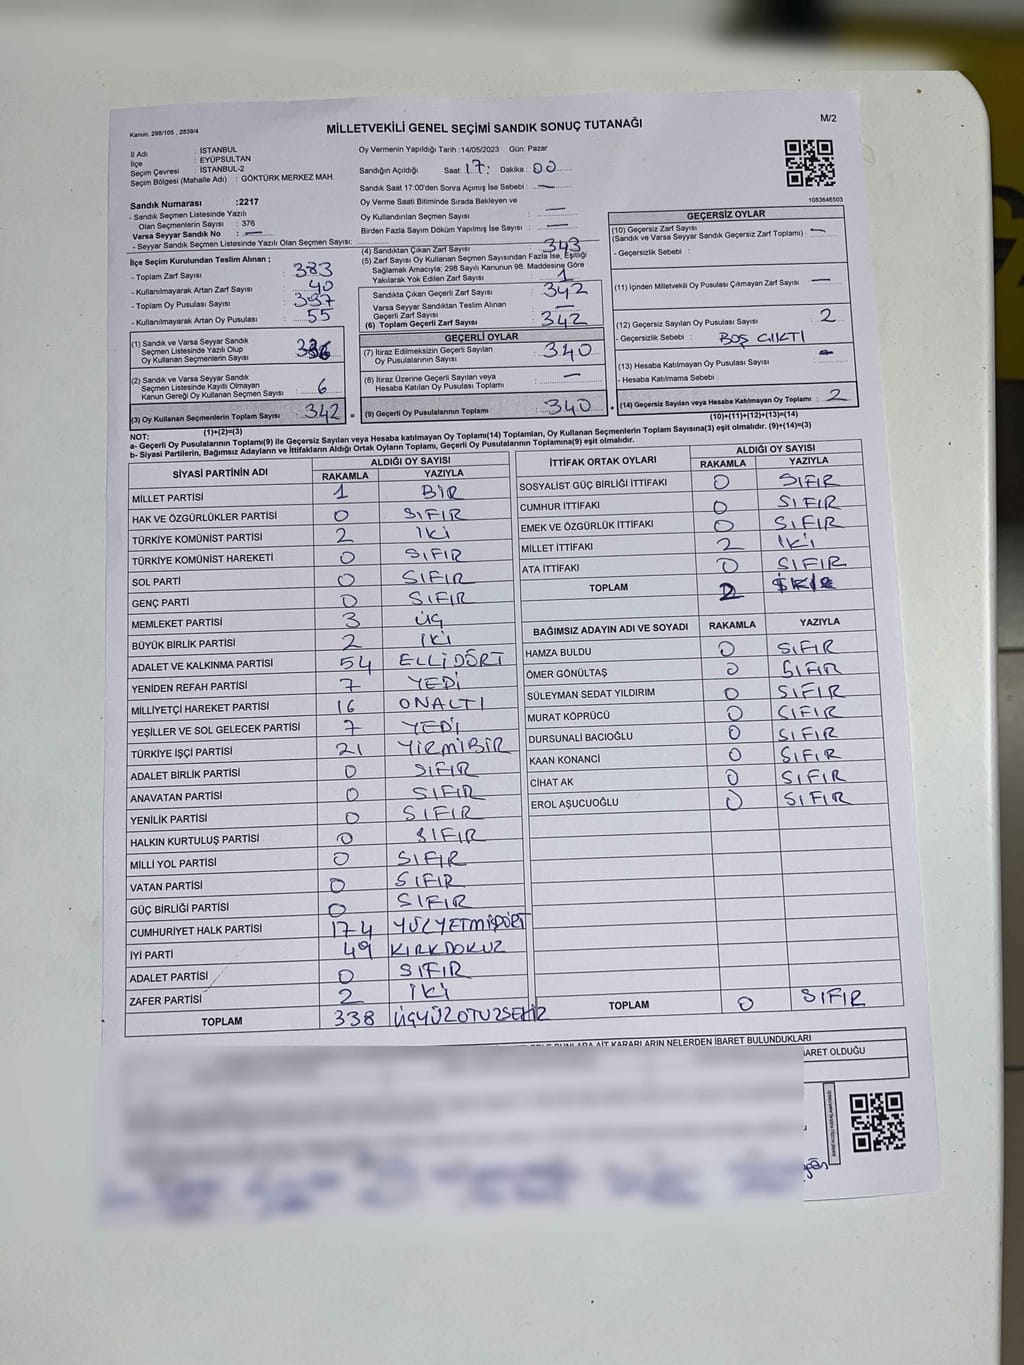 Kanun, 298/105 , 2839/4
MİLLETVEKİLİ GENEL SEÇİMİ SANDIK SONUÇ TUTANAĞI
M/2
İl Adı : İSTANBUL
İlçe : EYÜPSULTAN
Seçim Çevresi : İSTANBUL-2
Seçim Bölgesi (Mahalle Adı) : GÖKTÜRK MERKEZ MAH.
Sandık Numarası :2217
- Sandık Seçmen Listesinde Yazılı
Olan Seçmenlerin Sayısı : 376
Varsa Seyyar Sandık No : —
- Seyyar Sandık Seçmen Listesinde Yazılı Olan Seçmen Sayısı:
Oy Vermenin Yapıldığı Tarih :14/05/2023 Gün: Pazar
Sandığın Açıldığı Saat: 17: Dakika : 00
Sandık Saat 17:00'den Sonra Açımış İse Sebebi : —
Oy Verme Saati Bitiminde Sırada Bekleyen ve
Oy Kullandırılan Seçmen Sayısı : —
Birden Fazla Sayım Döküm Yapılmış İse Sayısı : —
1083646503
İlçe Seçim Kurulundan Teslim Alınan ;
- Toplam Zarf Sayısı : 383
- Kullanılmayarak Artan Zarf Sayısı : 40
- Toplam Oy Pusulası Sayısı : 397
- Kullanılmayarak Artan Oy Pusulası : 55
(1) Sandık ve Varsa Seyyar Sandık
Seçmen Listesinde Yazılı Olup
Oy Kullanan Seçmenlerin Sayısı : 336
(2) Sandık ve Varsa Seyyar Sandık
Seçmen Listesinde Kayıtlı Olmayan
Kanun Gereği Oy Kullanan Seçmen Sayısı : 6
(3) Oy Kullanan Seçmenlerin Toplam Sayısı : 342 =
(1)+(2)=(3)
(4) Sandıktan Çıkan Zarf Sayısı : 343
(5) Zarf Sayısı Oy Kullanan Seçmen Sayısından Fazla İse, Eşitliği
Sağlamak Amacıyla; 298 Sayılı Kanunun 98. Maddesine Göre
Yakılarak Yok Edilen Zarf Sayısı : 1
Sandıkta Çıkan Geçerli Zarf Sayısı : 342
Varsa Seyyar Sandıktan Teslim Alınan
Geçerli Zarf Sayısı : —
(6) Toplam Geçerli Zarf Sayısı : 342
GEÇERLİ OYLAR
(7) İtiraz Edilmeksizin Geçerli Sayılan
Oy Pusulalarının Sayısı : 340
(8) İtiraz Üzerine Geçerli Sayılan veya
Hesaba Katılan Oy Pusulası Toplamı : —
(9) Geçerli Oy Pusulalarının Toplamı : 340 +
GEÇERSİZ OYLAR
(10) Geçersiz Zarf Sayısı : —
(Sandık ve Varsa Seyyar Sandık Geçersiz Zarf Toplamı)
- Geçersizlik Sebebi :
(11) İçinden Milletvekili Oy Pusulası Çıkmayan Zarf Sayısı : —
(12) Geçersiz Sayılan Oy Pusulası Sayısı : 2
- Geçersizlik Sebebi : BOŞ ÇIKTI
(13) Hesaba Katılmayan Oy Pusulası Sayısı : —
- Hesaba Katılmama Sebebi :
(14) Geçersiz Sayılan veya Hesaba Katılmayan Oy Toplamı : 2
(10)+(11)+(12)+(13)=(14)
NOT:
a- Geçerli Oy Pusulalarının Toplamı(9) ile Geçersiz Sayılan veya Hesaba katılmayan Oy Toplamı(14) Toplamları, Oy Kullanan Seçmenlerin Toplam Sayısına(3) eşit olmalıdır. (9)+(14)=(3)
b- Siyasi Partilerin, Bağımsız Adayların ve İttifakların Aldığı Ortak Oyların Toplamı, Geçerli Oy Pusulalarının Toplamına(9) eşit olmalıdır.
SİYASİ PARTİNİN ADI ALDIĞI OY SAYISI
RAKAMLA YAZIYLA
MİLLET PARTİSİ 1 BİR
HAK VE ÖZGÜRLÜKLER PARTİSİ 0 SIFIR
TÜRKİYE KOMÜNİST PARTİSİ 2 İKİ
TÜRKİYE KOMÜNİST HAREKETİ 0 SIFIR
SOL PARTİ 0 SIFIR
GENÇ PARTİ 0 SIFIR
MEMLEKET PARTİSİ 3 ÜÇ
BÜYÜK BİRLİK PARTİSİ 2 İKİ
ADALET VE KALKINMA PARTİSİ 54 ELLİDÖRT
YENİDEN REFAH PARTİSİ 7 YEDİ
MİLLİYETÇİ HAREKET PARTİSİ 16 ONALTI
YEŞİLLER VE SOL GELECEK PARTİSİ 7 YEDİ
TÜRKİYE İŞÇİ PARTİSİ 21 YİRMİBİR
ADALET BİRLİK PARTİSİ 0 SIFIR
ANAVATAN PARTİSİ 0 SIFIR
YENİLİK PARTİSİ 0 SIFIR
HALKIN KURTULUŞ PARTİSİ 0 SIFIR
MİLLİ YOL PARTİSİ 0 SIFIR
VATAN PARTİSİ 0 SIFIR
GÜÇ BİRLİĞİ PARTİSİ 0 SIFIR
CUMHURİYET HALK PARTİSİ 174 YÜZYETMİŞDÖRT
İYİ PARTİ 49 KIRKDOKUZ
ADALET PARTİSİ 0 SIFIR
ZAFER PARTİSİ 2 İKİ
TOPLAM 338 ÜÇYÜZOTUZSEKİZ
İTTİFAK ORTAK OYLARI ALDIĞI OY SAYISI
RAKAMLA YAZIYLA
SOSYALİST GÜÇ BİRLİĞİ İTTİFAKI 0 SIFIR
CUMHUR İTTİFAKI 0 SIFIR
EMEK VE ÖZGÜRLÜK İTTİFAKI 0 SIFIR
MİLLET İTTİFAKI 2 İKİ
ATA İTTİFAKI 0 SIFIR
TOPLAM 2 İKİ
BAĞIMSIZ ADAYIN ADI VE SOYADI RAKAMLA YAZIYLA
HAMZA BULDU 0 SIFIR
ÖMER GÖNÜLTAŞ 0 SIFIR
SÜLEYMAN SEDAT YILDIRIM 0 SIFIR
MURAT KÖPRÜCÜ 0 SIFIR
DURSUNALİ BACIOĞLU 0 SIFIR
KAAN KONANCİ 0 SIFIR
CİHAT AK 0 SIFIR
EROL AŞUCUOĞLU 0 SIFIR
TOPLAM 0 SIFIR
AİT KARARLARIN NELERDEN İBARET BULUNDUKLARI
BARET OLDUĞU